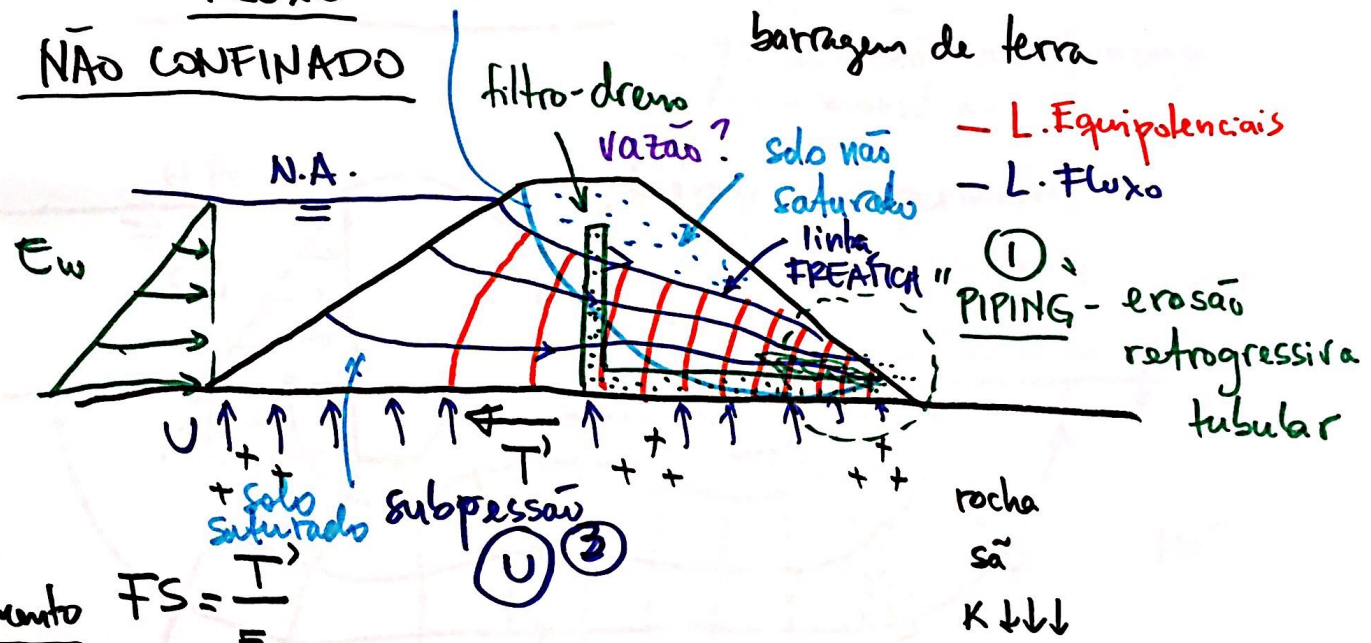 NÃO CONFINADO
barragem de terra
filtro-dreno
vazão?
solo não
saturado
— L. Equipotenciais
— L. Fluxo
N.A.
Ew
linha
FREÁTICA "
1
PIPING - erosão
retrogressiva
tubular
U
T
solo
saturado
subpressão
U 3
rocha
sã
K ↓↓↓
FS = T